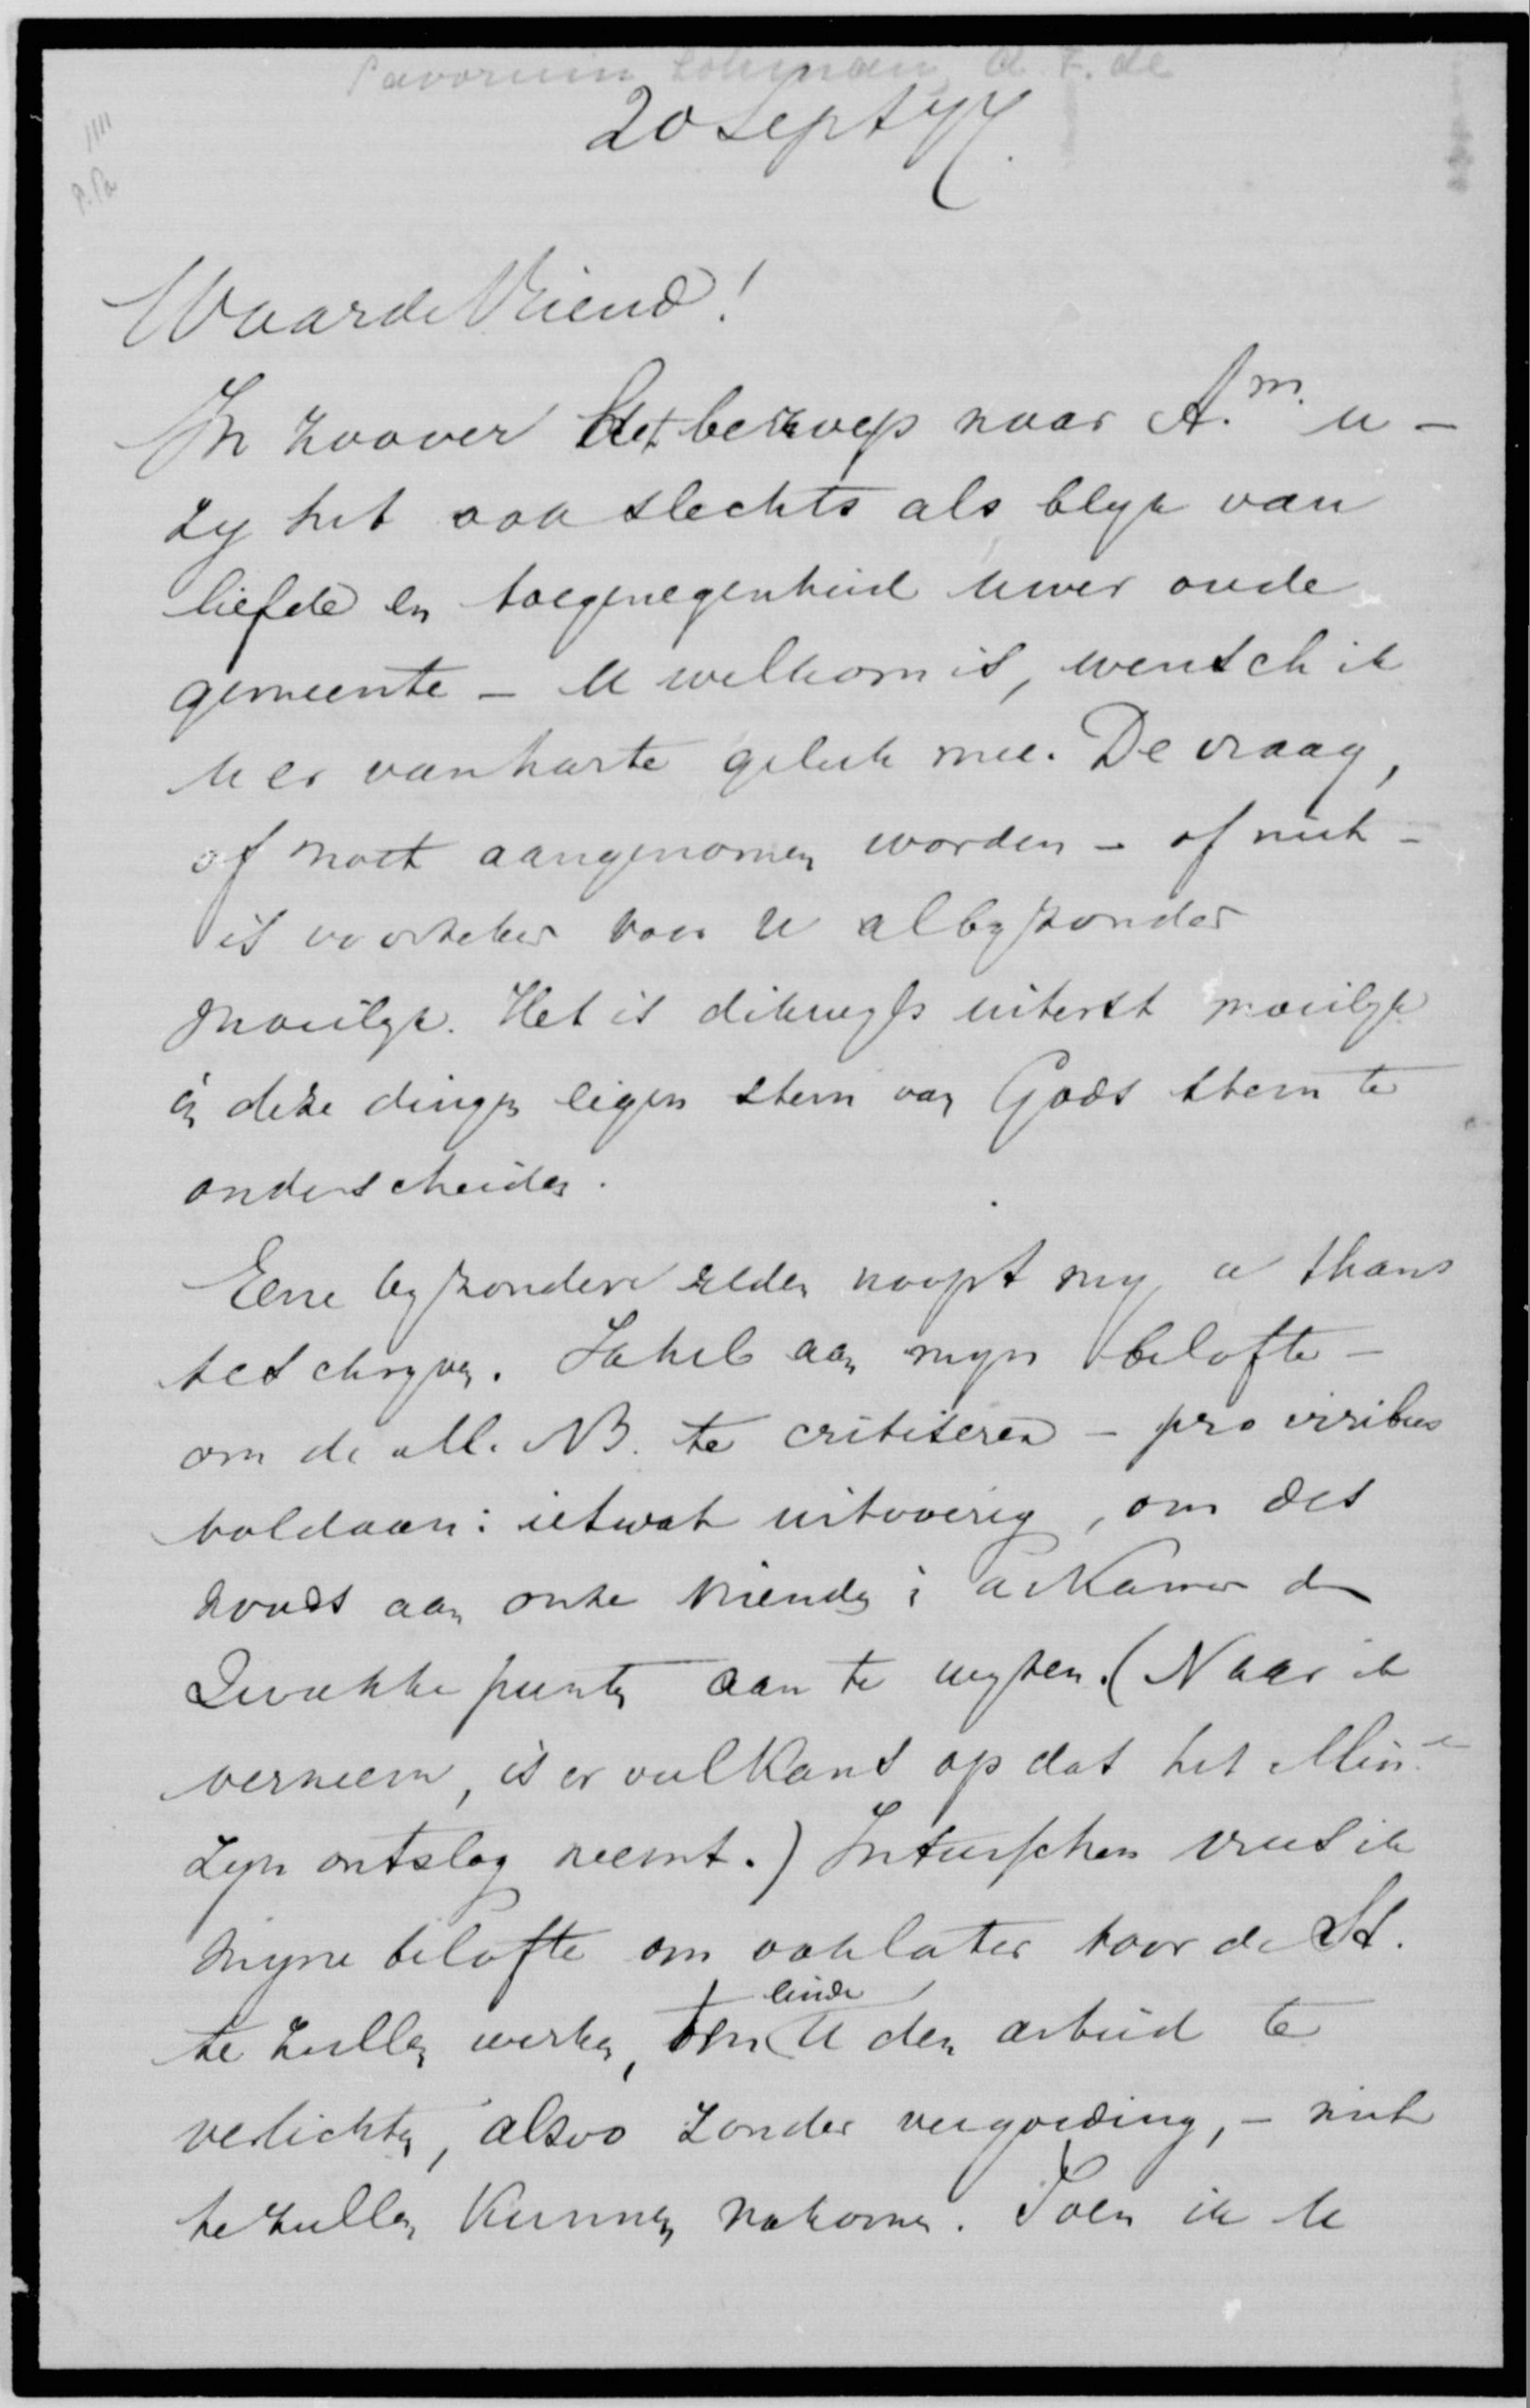 Savornin Lohman, A. F. de
20 Sept 77.
1111
Waarde Vriend!
In zoover het beroep naar A.m. u –
zy het ook slechts als blyk van
liefde en toegenegenheid uwer oude
gemeente – u welkom is, wensch ik
u er van harte geluk mee. De vraag,
of moet aangenomen worden – of niet –
is voorzeker voor u al byzonder
moeilyk. Het is dikwyls uiterst moeilyk
in deze dingen eigen stem van Gods stem te
onderscheiden.
Eene byzondere reden noopt my u thans
te schryven. Ik heb aan myn belofte –
om de M. v. B. te critiseren – pro viribus
voldaan: ietwat uitvoerig, om des
noods aan onze vrienden in de Kamer de
zwakke punten aan te wyzen. (Naar ik
verneem, is er veel kans op dat het Min.ie
zyn ontslag neemt.) Intusschen vrees ik
myne belofte om ook later voor de St.
te zullen werken, ten einde U den arbeid te
verlichten, alzoo zonder vergoeding, – niet
te zullen kunnen nakomen. Toen ik U